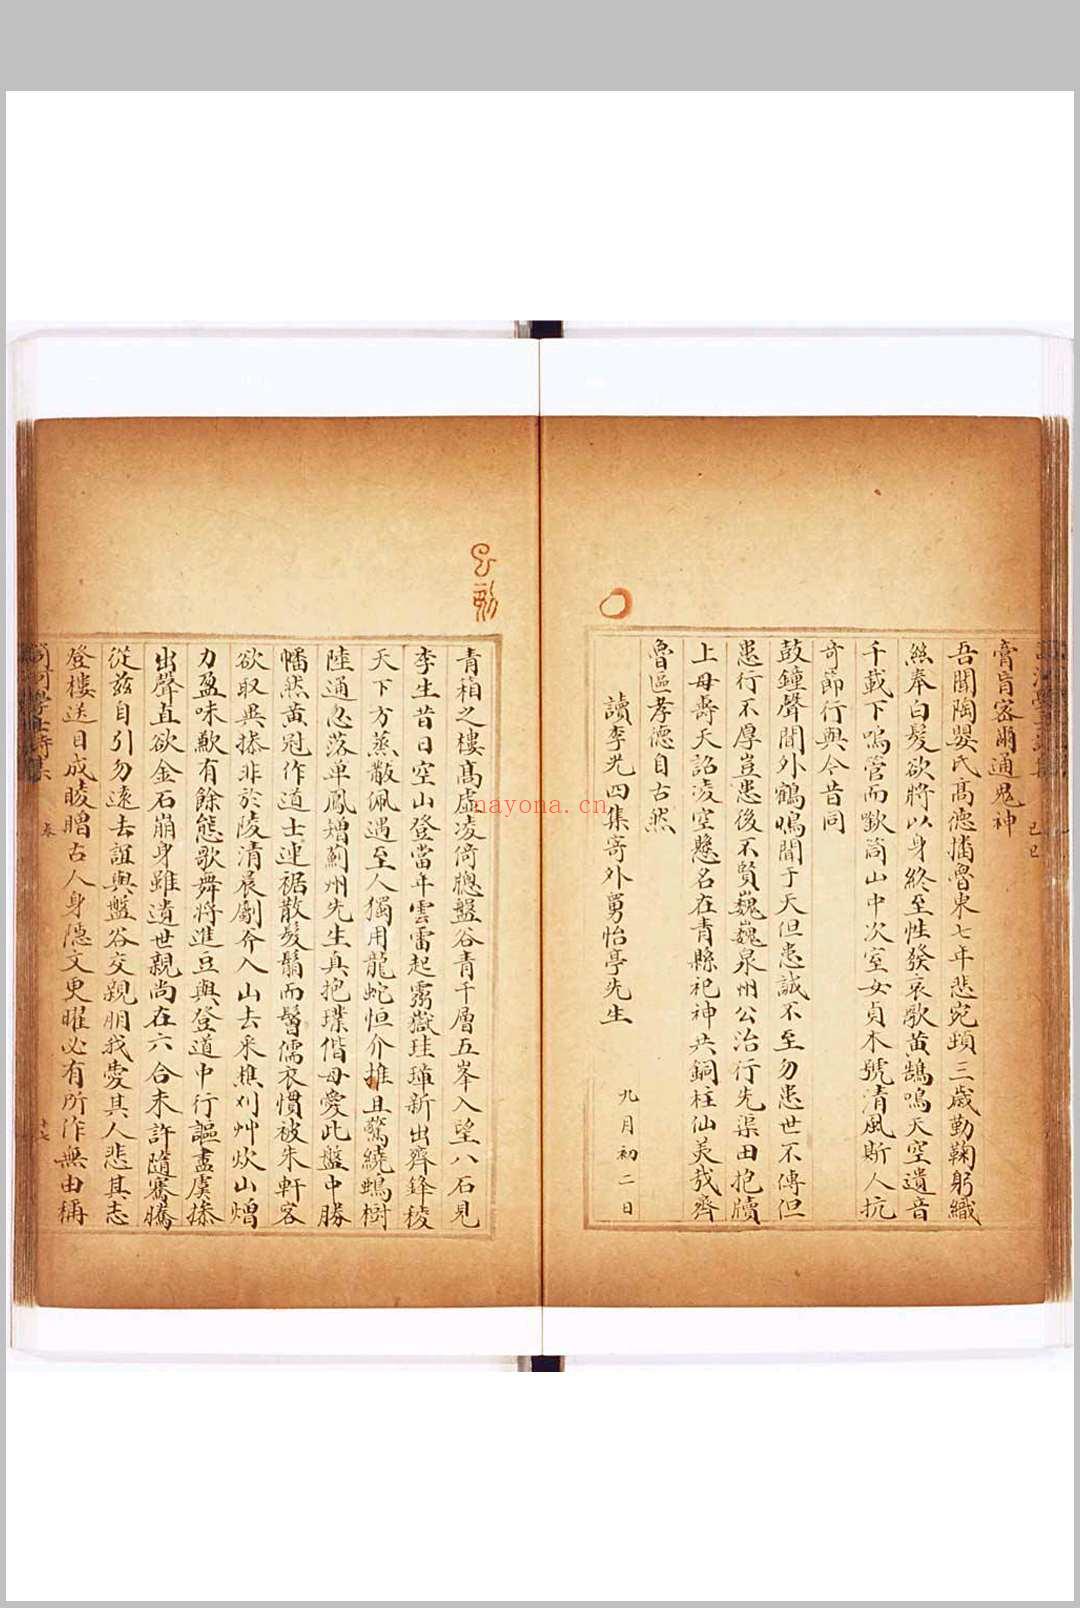 膏肓密爾通鬼神
吾聞陶嬰氏高德播魯東七年悲宛頸三歲勤鞠躬織
絲奉白髮欲將以身終至性發哀歌黃鵠鳴天空遺音
千載下嗚管而歎筒山中次室女貞木號清風斯人抗
奇節行與今昔同
鼓鐘聲聞外鶴鳴聞于天但患誠不至勿患世不傳但
患行不厚豈患後不賢巍巍泉州公治行先渠田抱牘
上母壽天詔凌空懸名在青縣祀神共銅柱仙美哉齊
魯區孝德自古然
讀李光四集寄外舅怡亭先生 九月初二日
青箱之樓高虛凌倚牕盤谷青千層五峯入望八石見
李生昔日空山登當年雲雷起霧嶽珪璋新出齊鋒稜
天下方蒸散佩遇至人獨用龍蛇恒介推且驚繞鵲樹
陸通忽落單鳳矰薊州先生真抱璞偕母愛此盤中勝
幡然黃冠作道士連裾散髮鬅而鬙儒衣慣被朱軒客
欲取吳捺非於陵清晨劚朮入山去采樵刈艸炊山甑
力盈味歉有餘態歌舞將進豆與登道中行謳盡虞捺
出聲直欲金石崩身雖遺世親尚在六合未許隨騫騰
從茲自引勿遠去誼與盤谷交親朋我愛其人悲其志
登樓送目成晙贈古人身隱文更曜必有所作無由稱